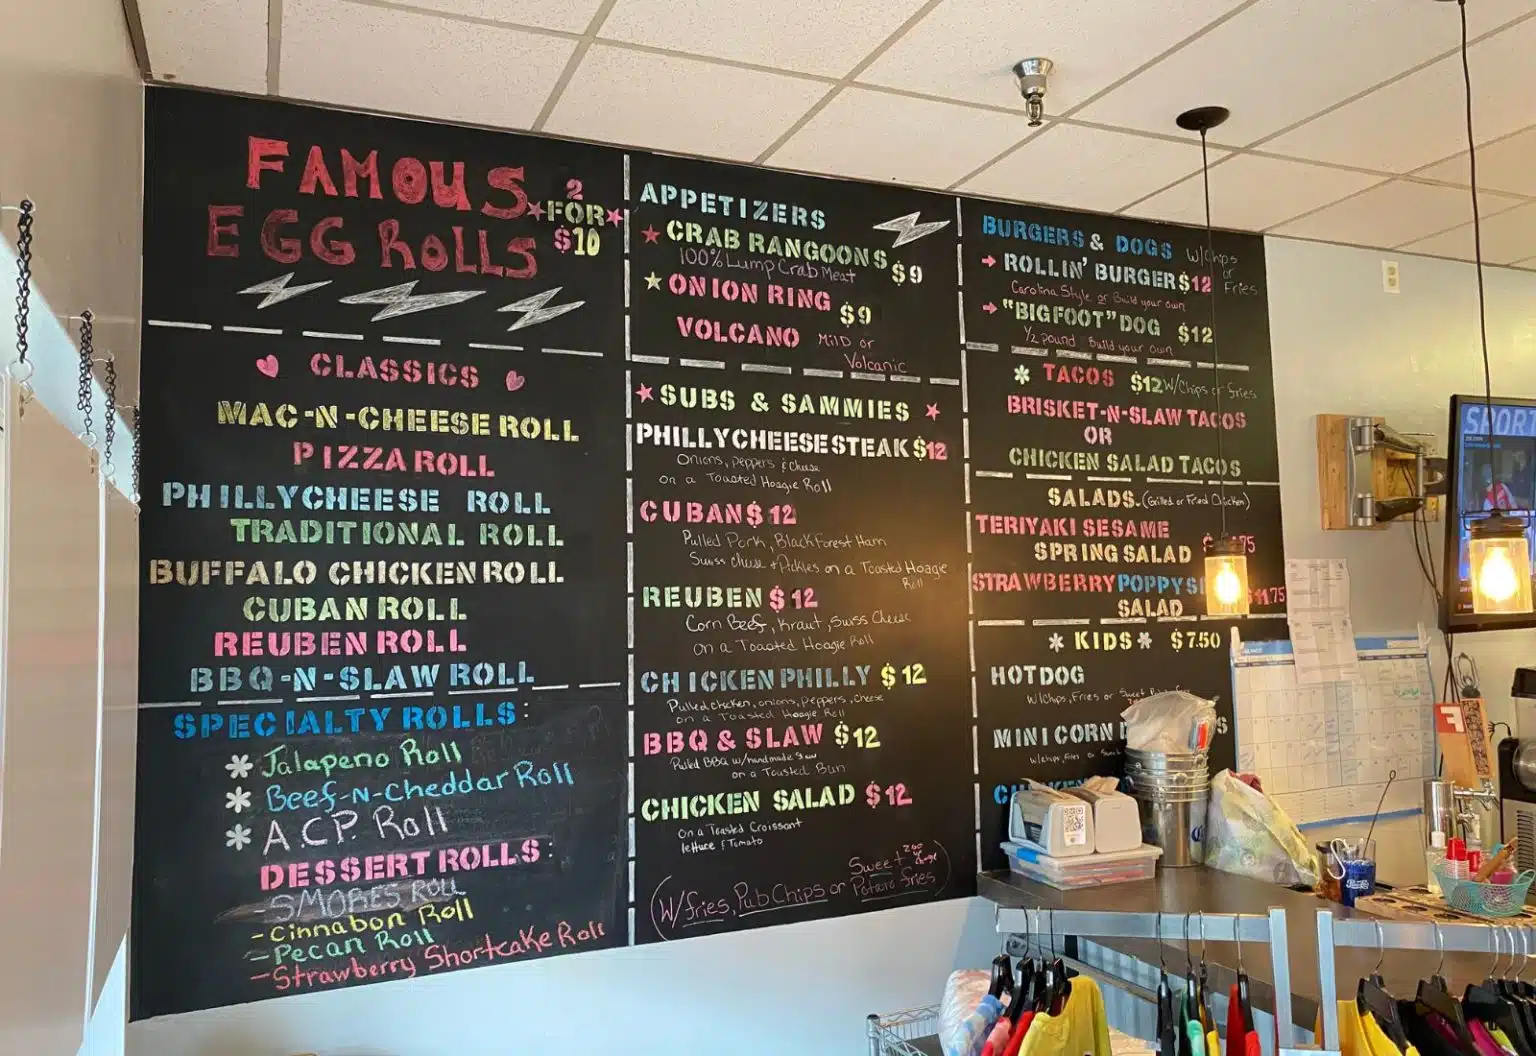 FAMOUS
EGG ROLLS
2
FOR
$10
CLASSICS
MAC-N-CHEESE ROLL
PIZZA ROLL
PHILLYCHEESE ROLL
TRADITIONAL ROLL
BUFFALO CHICKEN ROLL
CUBAN ROLL
REUBEN ROLL
BBQ-N-SLAW ROLL
SPECIALTY ROLLS:
Jalapeno Roll
Beef-N-Cheddar Roll
A.C.P. Roll
DESSERT ROLLS:
-SMORES ROLL
-Cinnabon Roll
-Pecan Roll
-Strawberry Shortcake Roll
APPETIZERS
CRAB RANGOONS $9
100% Lump Crab Meat
ONION RING $9
VOLCANO MILD or
Volcanic
SUBS & SAMMIES
PHILLYCHEESESTEAK $12
Onions, peppers & cheese
on a Toasted Hoagie Roll
CUBAN $12
Pulled Pork, Black Forest Ham
Swiss cheese + Pickles on a Toasted Hoagie
Roll
REUBEN $12
Corn Beef, Kraut, Swiss Cheese
on a Toasted Hoagie Roll
CHICKEN PHILLY $12
Pulled chicken, onions, peppers, cheese
on a Toasted Hoagie Roll
BBQ & SLAW $12
Pulled BBQ w/handmade slaw
on a Toasted Bun
CHICKEN SALAD $12
on a Toasted Croissant
lettuce & Tomato
(W/fries, Pub Chips or Sweet
Potato fries)
BURGERS & DOGS W/Chips
or
Fries
ROLLIN' BURGER $12
Carolina Style or Build your own
"BIGFOOT" DOG $12
1/2 pound Build your own
TACOS $12 W/Chips or fries
BRISKET-N-SLAW TACOS
OR
CHICKEN SALAD TACOS
SALADS. (Grilled or Fried Chicken)
TERIYAKI SESAME
SPRING SALAD
STRAWBERRY POPPY
SALAD
KIDS $7.50
HOTDOG
W/Chips, Fries or Sweet
MINI CORN
w/chips, fries or
SPORT